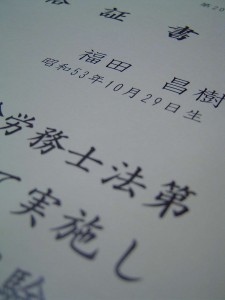 証書
福田 昌樹
昭和53年10月29日生
労務士法第
て実施し
験